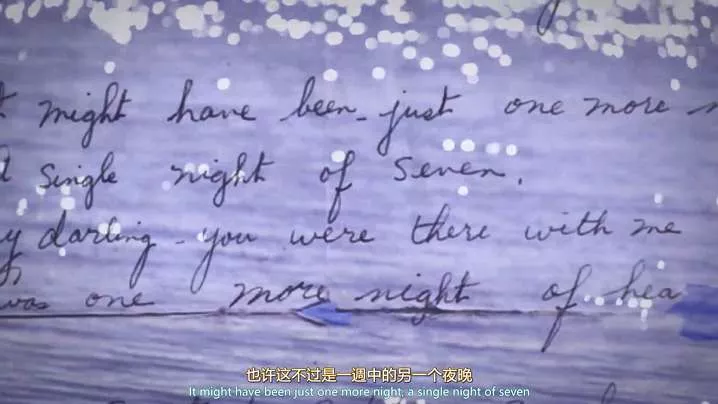 might have been just one more
single night of seven.
darling you were there with me
was one more night of hea
也许这不过是一週中的另一个夜晚
It might have been just one more night, a single night of seven